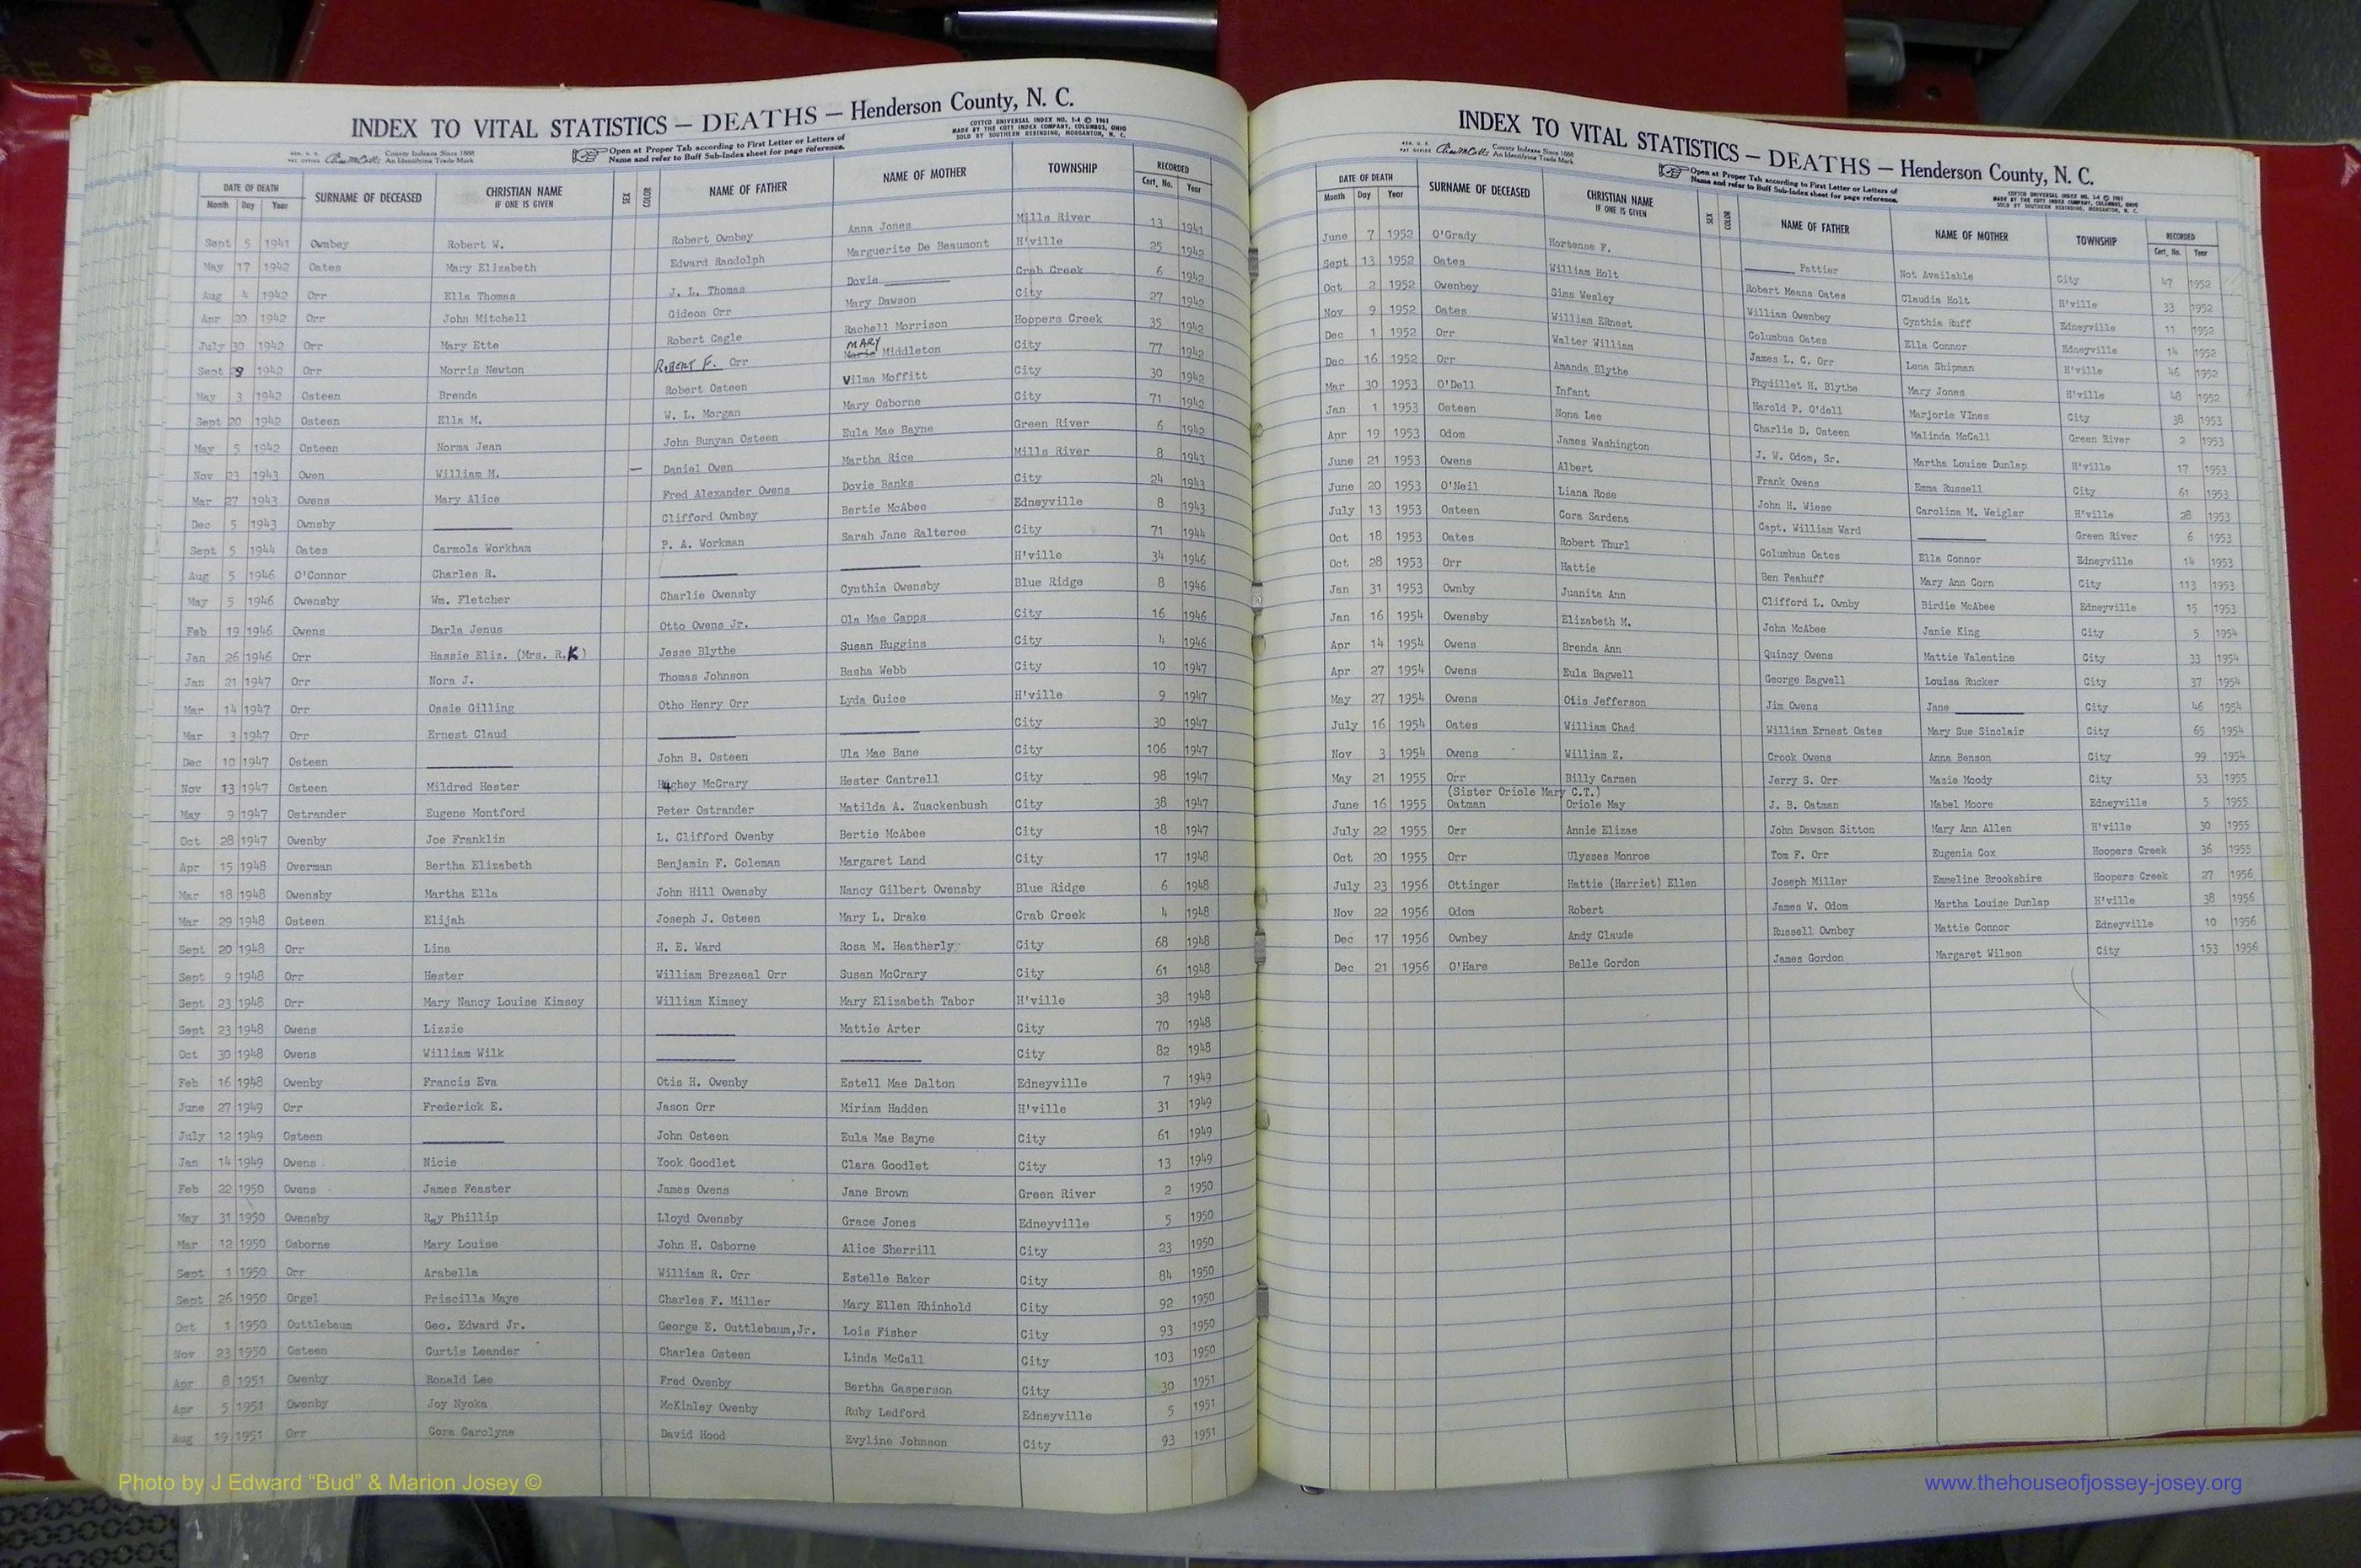 INDEX TO VITAL STATISTICS — DEATHS — Henderson County, N. C.
COTTCO UNIVERSAL INDEX NO. 1-4 © 1961
MADE BY THE COTT INDEX COMPANY, COLUMBUS, OHIO
SOLD BY SOUTHERN REBINDING, MORGANTON, N. C.
REG. U. S. PAT. OFFICE County Indexes Since 1888 An Identifying Trade Mark
Open at Proper Tab according to First Letter or Letters of
Name and refer to Buff Sub-Index sheet for page reference.
DATE OF DEATH SURNAME OF DECEASED CHRISTIAN NAME IF ONE IS GIVEN SEX COLOR NAME OF FATHER NAME OF MOTHER TOWNSHIP RECORDED
Month Day Year Cert. No. Year
Sept 5 1941 Ownbey Robert W. Robert Ownbey Anna Jones Mills River 13 1941
May 17 1942 Oates Mary Elizabeth Edward Randolph Marguerite De Beaumont H'ville 25 1942
Aug 4 1942 Orr Ella Thomas J. L. Thomas Dovie Crab Creek 6 1942
Apr 20 1942 Orr John Mitchell Gideon Orr Mary Dawson City 27 1942
July 30 1942 Orr Mary Etta Robert Cagle Rachell Morrison Hoopers Creek 35 1942
Sept 9 1942 Orr Morris Newton ROBERT F. Orr MARY Marie Middleton City 77 1942
May 3 1942 Osteen Brenda Robert Osteen Vilma Moffitt City 30 1942
Sept 20 1942 Osteen Ella M. W. L. Morgan Mary Osborne City 71 1942
May 5 1942 Osteen Norma Jean John Bunyan Osteen Eula Mae Bayne Green River 6 1942
Nov 23 1943 Owen William M. — Daniel Owen Martha Rice Mills River 8 1943
Mar 27 1943 Owens Mary Alice Fred Alexander Owens Dovie Banks City 24 1943
Dec 5 1943 Ownsby Clifford Ownbsy Bertie McAbee Edneyville 8 1943
Sept 5 1944 Oates Carmola Workham P. A. Workman Sarah Jane Ralteree City 71 1944
Aug 5 1946 O'Connor Charles R. H'ville 34 1946
May 5 1946 Owensby Wm. Fletcher Charlie Owensby Cynthia Owensby Blue Ridge 8 1946
Feb 19 1946 Owens Darla Jenus Otto Owens Jr. Ola Mae Capps City 16 1946
Jan 26 1946 Orr Hassie Eliz. (Mrs. R.K) Jesse Blythe Susan Huggins City 4 1946
Jan 21 1947 Orr Nora J. Thomas Johnson Basha Webb City 10 1947
Mar 14 1947 Orr Ossie Gilling Otho Henry Orr Lyda Guice H'ville 9 1947
Mar 3 1947 Orr Ernest Claud City 30 1947
Dec 10 1947 Osteen John B. Osteen Ula Mae Bane City 106 1947
Nov 13 1947 Osteen Mildred Hester Hughey McCrary Hester Cantrell City 98 1947
May 9 1947 Ostrander Eugene Montford Peter Ostrander Matilda A. Zuackenbush City 38 1947
Oct 28 1947 Owenby Joe Franklin L. Clifford Owenby Bertie McAbee City 18 1947
Apr 15 1948 Overman Bertha Elizabeth Benjamin F. Coleman Margaret Land City 17 1948
Mar 18 1948 Owensby Martha Ella John Hill Owensby Nancy Gilbert Owensby Blue Ridge 6 1948
Mar 29 1948 Osteen Elijah Joseph J. Osteen Mary L. Drake Crab Creek 4 1948
Sept 20 1948 Orr Lina H. E. Ward Rosa M. Heatherly City 68 1948
Sept 9 1948 Orr Hester William Brezaeal Orr Susan McCrary City 61 1948
Sept 23 1948 Orr Mary Nancy Louise Kimsey William Kimsey Mary Elizabeth Tabor H'ville 38 1948
Sept 23 1948 Owens Lizzie Mattie Arter City 70 1948
Oct 30 1948 Owens William Wilk City 82 1948
Feb 16 1948 Owenby Francis Eva Otis H. Owenby Estell Mae Dalton Edneyville 7 1949
June 27 1949 Orr Frederick E. Jason Orr Miriam Hadden H'ville 31 1949
July 12 1949 Osteen John Osteen Eula Mae Bayne City 61 1949
Jan 14 1949 Owens Nicie Yook Goodlet Clara Goodlet City 13 1949
Feb 22 1950 Owens James Feaster James Owens Jane Brown Green River 2 1950
May 31 1950 Owensby Ray Phillip Lloyd Owensby Grace Jones Edneyville 5 1950
Mar 12 1950 Osborne Mary Louise John H. Osborne Alice Sherrill City 23 1950
Sept 1 1950 Orr Arabella William R. Orr Estelle Baker City 84 1950
Sept 26 1950 Orgel Priscilla Maye Charles F. Miller Mary Ellen Rhinhold City 92 1950
Oct 1 1950 Outtlebaum Geo. Edward Jr. George E. Outtlebaum,Jr. Lois Fisher City 93 1950
Nov 23 1950 Osteen Curtis Leander Charles Osteen Linda McCall City 103 1950
Apr 8 1951 Owenby Ronald Lee Fred Owenby Bertha Gasperson City 30 1951
Apr 5 1951 Owenby Joy Nyoka McKinley Owenby Ruby Ledford Edneyville 5 1951
Aug 19 1951 Orr Cora Carolyne David Hood Evyline Johnson City 93 1951
INDEX TO VITAL STATISTICS — DEATHS — Henderson County, N. C.
REG. U. S. PAT. OFFICE County Indexes Since 1888 An Identifying Trade Mark
Open at Proper Tab according to First Letter or Letters of
Name and refer to Buff Sub-Index sheet for page reference.
COTTCO UNIVERSAL INDEX NO. 1-4 © 1961
MADE BY THE COTT INDEX COMPANY, COLUMBUS, OHIO
SOLD BY SOUTHERN REBINDING, MORGANTON, N. C.
DATE OF DEATH SURNAME OF DECEASED CHRISTIAN NAME IF ONE IS GIVEN SEX COLOR NAME OF FATHER NAME OF MOTHER TOWNSHIP RECORDED
Month Day Year Cert. No. Year
June 7 1952 O'Grady Hortense F. Pattier Not Available City 47 1952
Sept 13 1952 Oates William Holt Robert Means Oates Claudia Holt H'ville 33 1952
Oct 2 1952 Owenbey Sims Wesley William Owenbey Cynthia Ruff Edneyville 11 1952
Nov 9 1952 Oates William ERnest Columbus Oates Ella Connor Edneyville 14 1952
Dec 1 1952 Orr Walter William James L. C. Orr Lena Shipman H'ville 46 1952
Dec 16 1952 Orr Amanda Blythe Phydillet H. Blythe Mary Jones H'ville 48 1952
Mar 30 1953 O'Dell Infant Harold P. O'dell Marjorie VInes City 38 1953
Jan 1 1953 Osteen Nona Lee Charlie D. Osteen Malinda McCall Green River 2 1953
Apr 19 1953 Odom James Washington J. W. Odom, Sr. Martha Louise Dunlap H'ville 17 1953
June 21 1953 Owens Albert Frank Owens Emma Russell City 61 1953
June 20 1953 O'Neil Liana Rose John H. Wiese Carolina M. Weigler H'ville 28 1953
July 13 1953 Osteen Cora Sardena Capt. William Ward Green River 6 1953
Oct 18 1953 Oates Robert Thurl Columbus Oates Ella Connor Edneyville 14 1953
Oct 28 1953 Orr Hattie Ben Peahuff Mary Ann Corn City 113 1953
Jan 31 1953 Ownby Juanita Ann Clifford L. Ownby Birdie McAbee Edneyville 15 1953
Jan 16 1954 Owensby Elizabeth M. John McAbee Janie King City 5 1954
Apr 14 1954 Owens Brenda Ann Quincy Owens Mattie Valentine City 33 1954
Apr 27 1954 Owens Eula Bagwell George Bagwell Louisa Rucker City 37 1954
May 27 1954 Owens Otis Jefferson Jim Owens Jane City 46 1954
July 16 1954 Oates William Chad William Ernest Oates Mary Sue Sinclair City 65 1954
Nov 3 1954 Owens William Z. Crook Owens Anna Benson City 99 1954
May 21 1955 Orr Billy Carmen Jerry S. Orr Mazie Moody City 53 1955
(Sister Oriole Mary C.T.)
June 16 1955 Oatman Oriole May J. B. Oatman Mabel Moore Edneyville 5 1955
July 22 1955 Orr Annie Elizae John Dawson Sitton Mary Ann Allen H'ville 30 1955
Oct 20 1955 Orr Ulysses Monroe Tom F. Orr Eugenia Cox Hoopers Creek 36 1955
July 23 1956 Ottinger Hattie (Harriet) Ellen Joseph Miller Emmeline Brookshire Hoopers Creek 27 1956
Nov 22 1956 Odom Robert James W. Odom Martha Louise Dunlap H'ville 38 1956
Dec 17 1956 Ownbey Andy Claude Russell Ownbey Mattie Connor Edneyville 10 1956
Dec 21 1956 O'Hare Belle Gordon James Gordon Margaret Wilson City 153 1956
Photo by J Edward “Bud” & Marion Josey ©
www.thehouseofjossey-josey.org